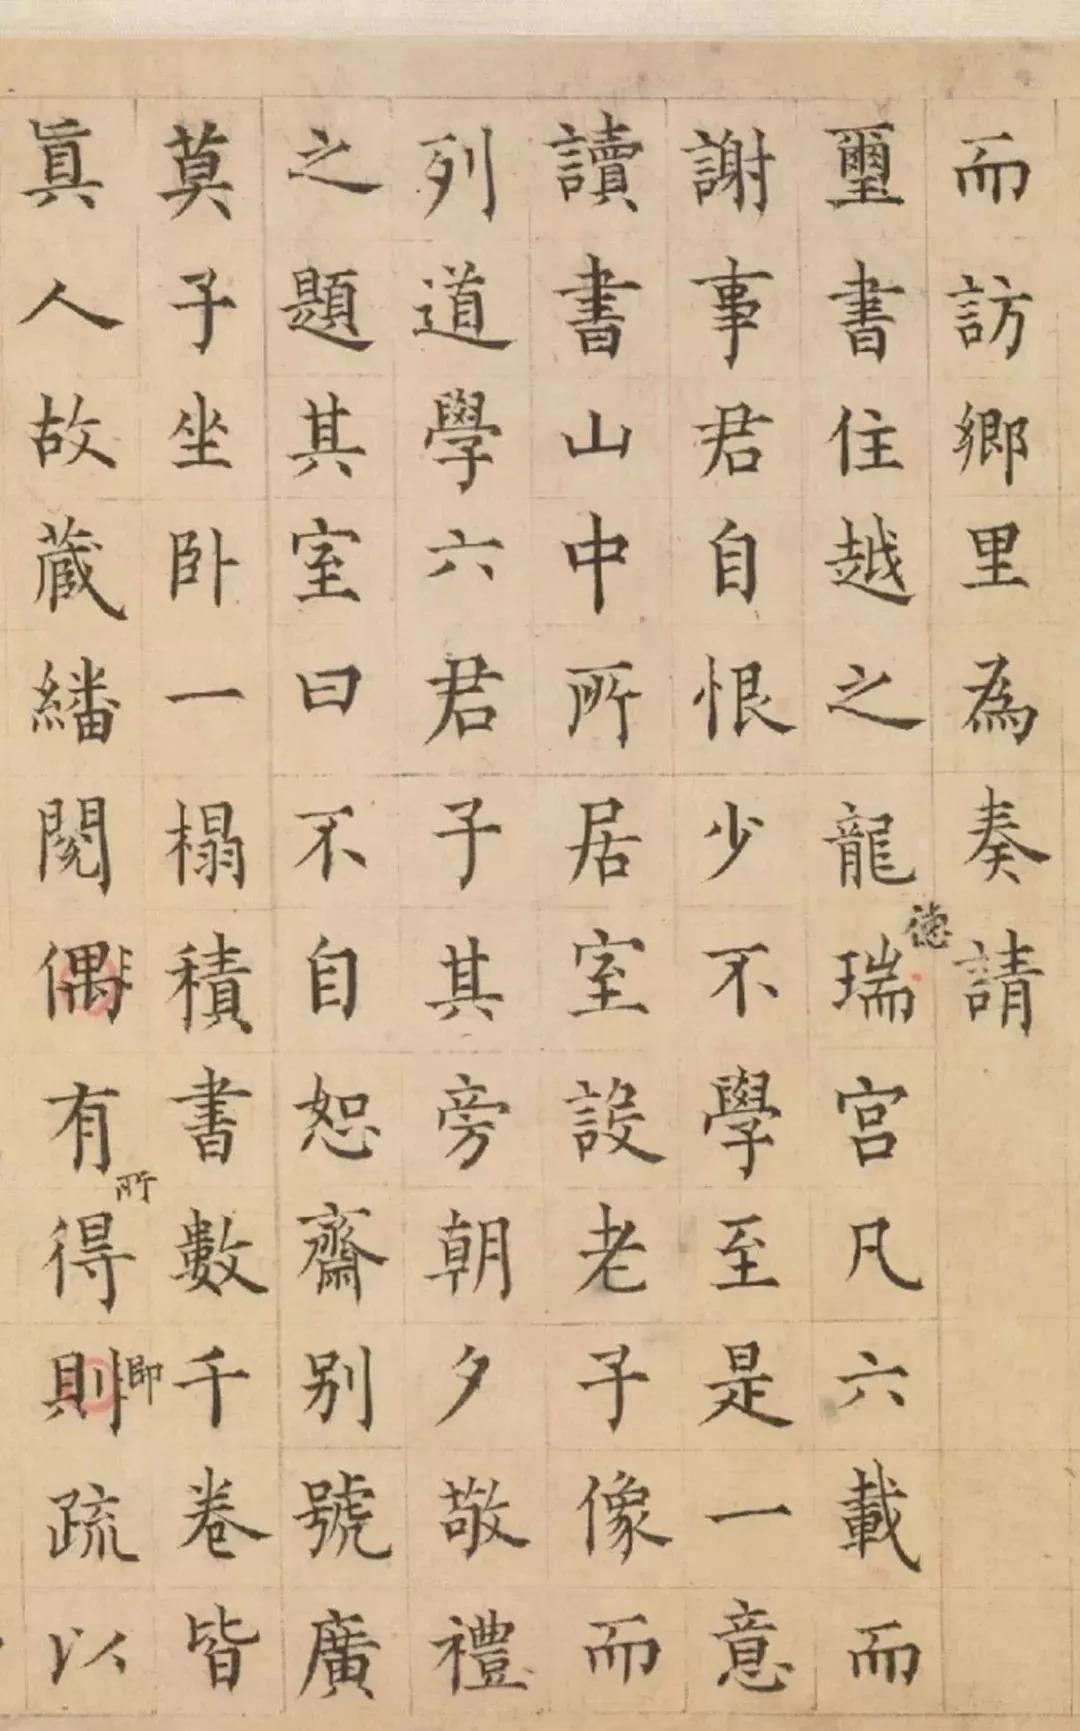 而訪鄉里為奏請
德
璽書住越之龍瑞宮凡六載而
謝事君自恨少不學至是一意
讀書山中所居室設老子像而
列道學六君子其旁朝夕敬禮
之題其室曰不自恕齋別號廣
莫子坐卧一榻積書數千卷皆
所
即
眞人故蔵繙閱偶有得則疏以